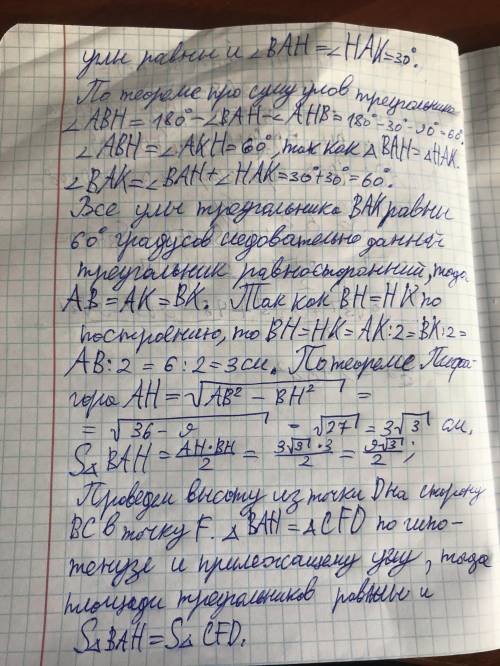 углы равны и ∠BAH = ∠HAK=30°.
По теореме про суму улов треугольника
∠ABH = 180°-∠BAH-∠AHB=180°-30°-90°=60°.
∠ABH = ∠AKH = 60°, так как △BAH=△HAK.
∠BAK=∠BAH+∠HAK=30°+30°=60°.
Все улы треугольника BAK равны
60° градусов следовательно данный
треугольник равносторонний, тогда
AB = AK = BK. Так как BH=HK по
построению, то BH=HK= AK:2=BK:2=
AB:2 = 6:2=3 см. По теореме Пифа-
гора AH = √AB² - BH² =
= √36 - 9 = √27 = 3√3 см.
S△ BAH = AH·BH/2 = 3√3·3/2 = 9√3/2;
Проведем высоту из точки D на сторону
BC в точку F. △BAH=△CFD по гипо-
тенузе и прилежащему углу, тогда
площади треугольников равны и
S△BAH=S△CFD.